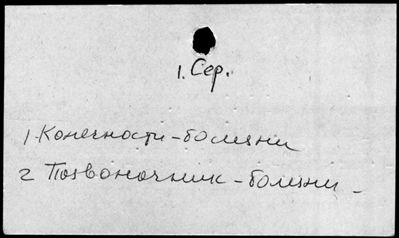 1. Сер.
1. Конечности - болезни
2 Позвоночник - болезни -